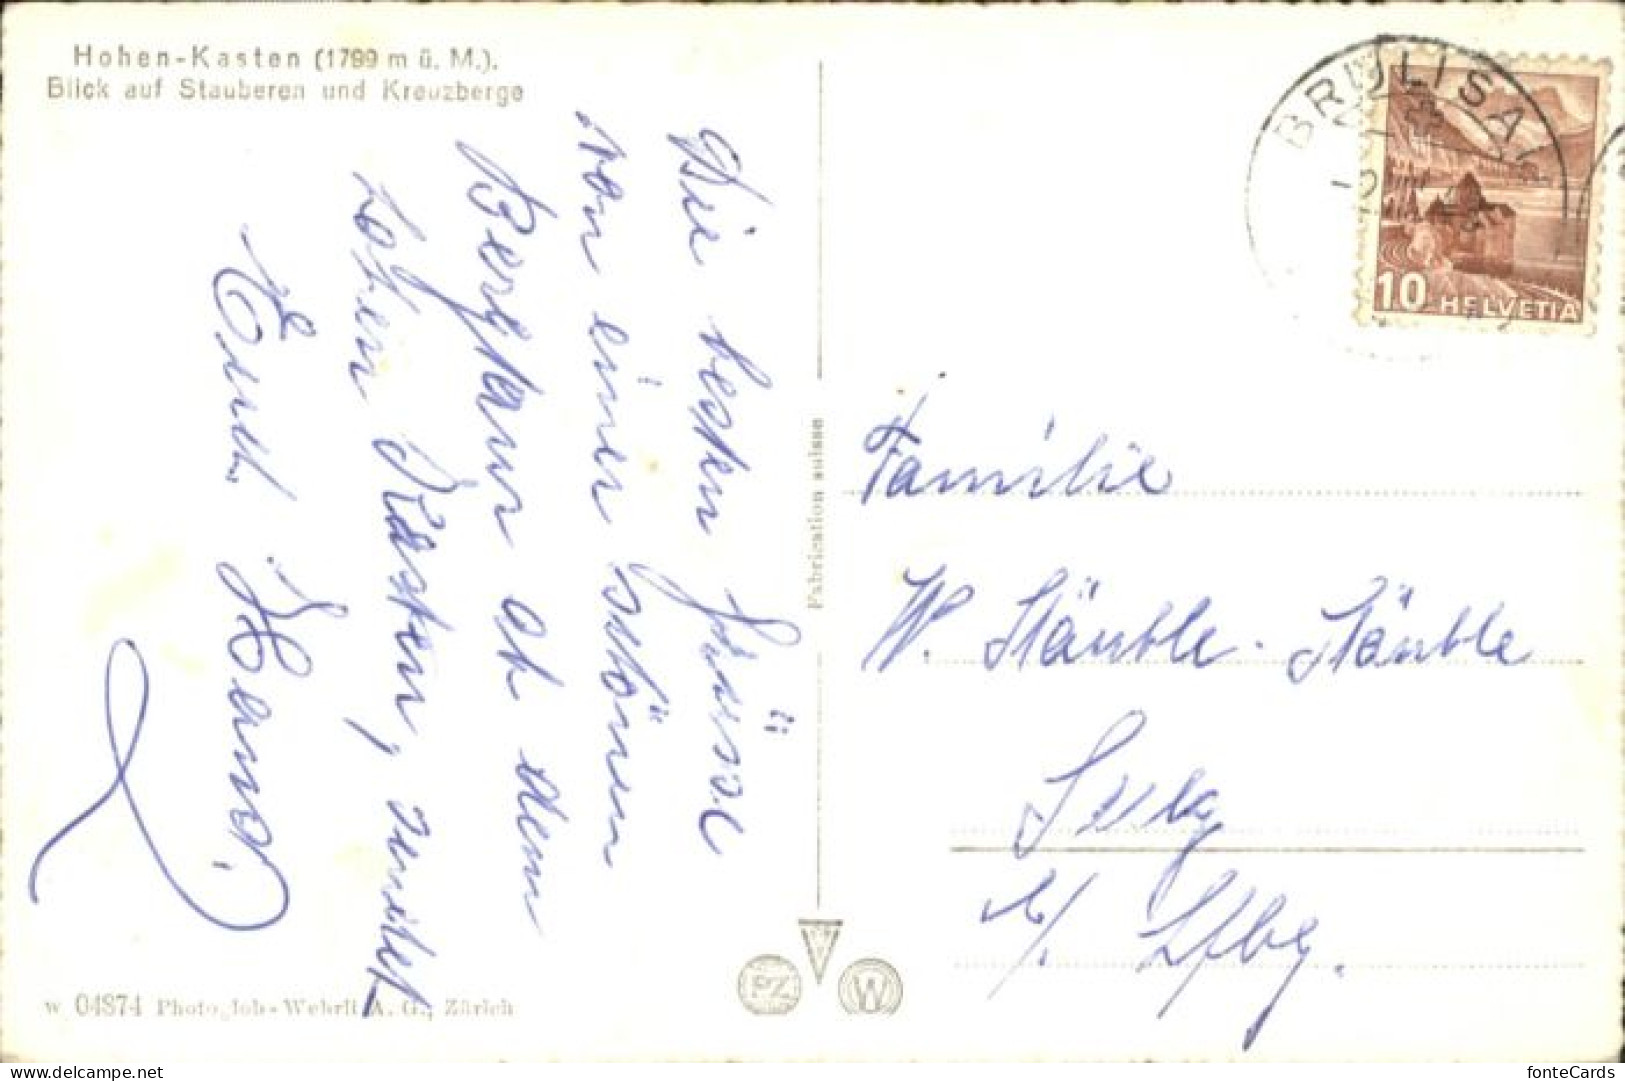 Hohen-Kasten (1799 m ü. M.).
Blick auf Stauberen und Kreuzberge
Die besten Grüsse
von einer schönen
Bergtour ob dem
hohen Kasten, sendet
Euch Hans.
Fabrication suisse
BRÜLISAU
10 HELVETIA
Familie
W. Stäuble-Stäuble
Sulz
b/ Lfbg.
PZ
W
W 04874 Photo Job-Wehrli A. G., Zürich
fonteCards